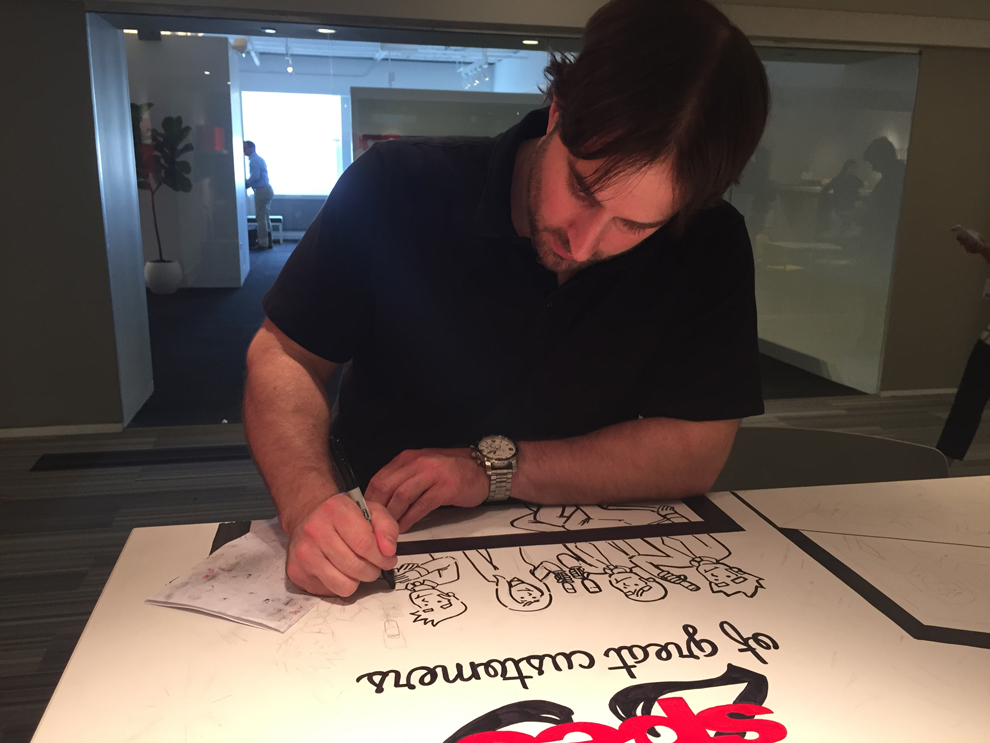 of great customers